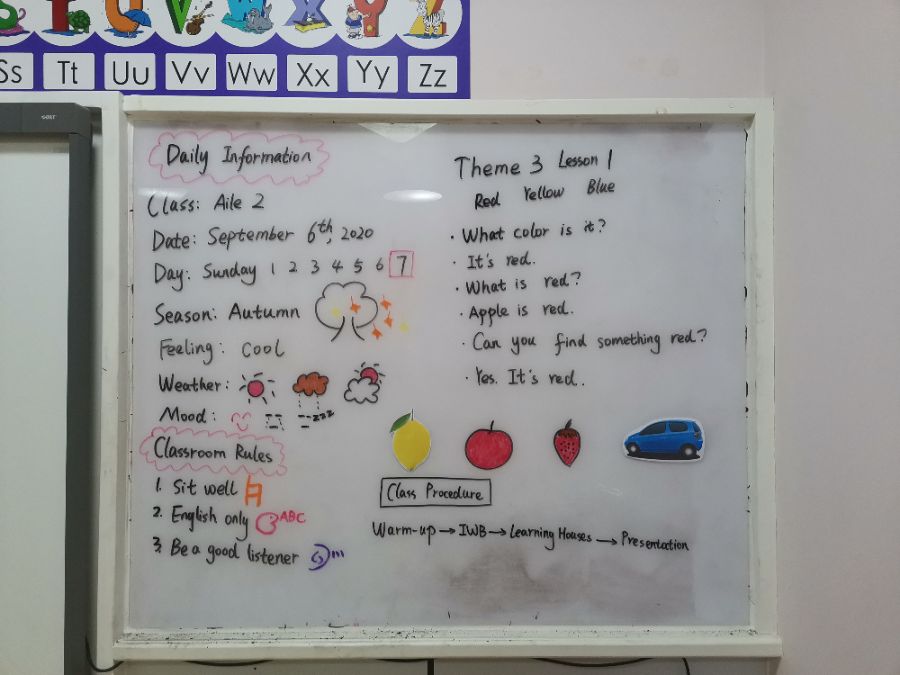 Ss Tt Uu Vv Ww Xx Yy Zz
Daily Information
Class: Aile 2
Date: September 6th, 2020
Day: Sunday 1 2 3 4 5 6 7
Season: Autumn
Feeling: cool
Weather:
Mood: zzz
Classroom Rules
1. Sit well
2. English only ABC
3. Be a good listener
Theme 3 Lesson 1
Red Yellow Blue
· What color is it?
· It's red.
· What is red?
· Apple is red.
· Can you find something red?
· Yes. It's red.
Class Procedure
Warm-up → IWB → Learning Houses → Presentation